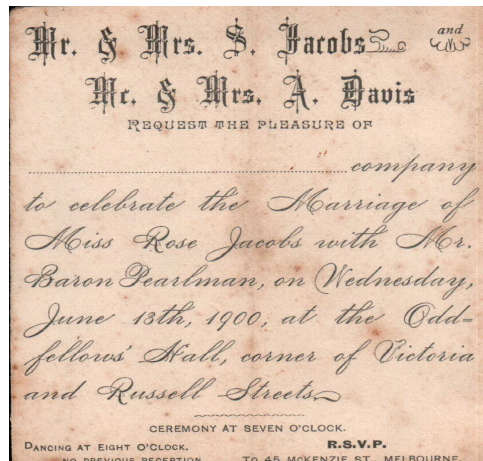 Mr. & Mrs. S. Jacobs and
Mr. & Mrs. A. Davis
REQUEST THE PLEASURE OF
........................................ company
to celebrate the Marriage of
Miss Rose Jacobs with Mr.
Baron Pearlman, on Wednesday,
June 13th, 1900, at the Odd=
fellows' Hall, corner of Victoria
and Russell Streets
CEREMONY AT SEVEN O'CLOCK.
DANCING AT EIGHT O'CLOCK. R.S.V.P.
NO PREVIOUS RECEPTION TO 45 MCKENZIE ST., MELBOURNE.